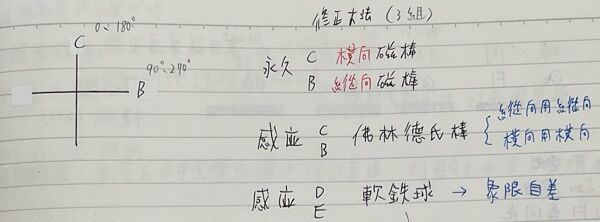 修正大法 (3組)
0、180°
C
90°、270°
B
永久 C 橫向磁棒
B 縱向磁棒
感应 C B 佛林德氏棒 { 縱向用縱向
橫向用橫向
感应 D E 軟鉄球 → 象限自差